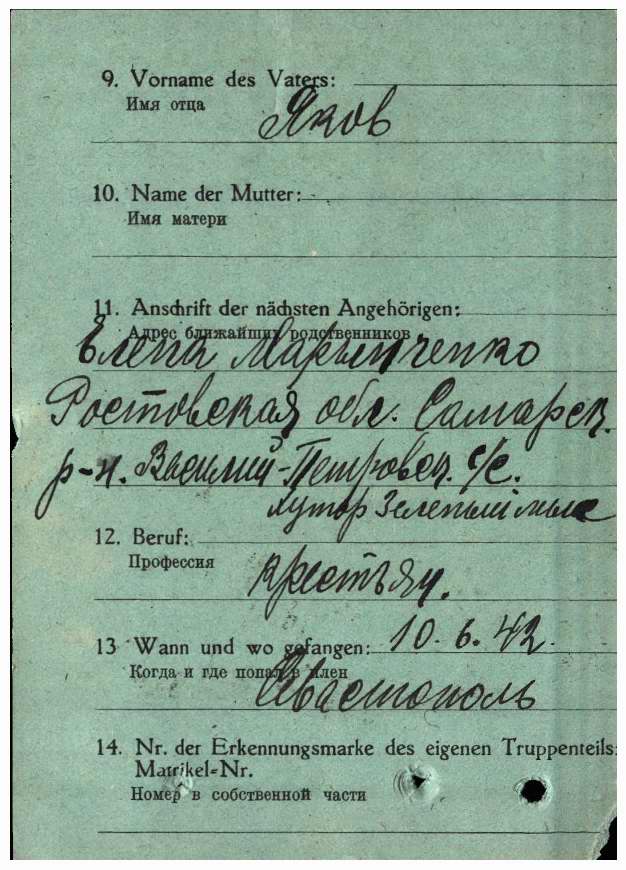 9. Vorname des Vaters:
Имя отца
Яков
10. Name der Mutter:
Имя матери
11. Anschrift der nächsten Angehörigen:
Адрес ближайших родственников
Елена Марынченко
Ростовская обл. Самарск.
р-н. Василий-Петровск. с/с.
хутор Зеленый мыс
12. Beruf:
Профессия
крестьян.
13 Wann und wo gefangen: 10.6.42.
Когда и где попал в плен
Севастополь
14. Nr. der Erkennungsmarke des eigenen Truppenteils:
Matrikel-Nr.
Номер в собственной части